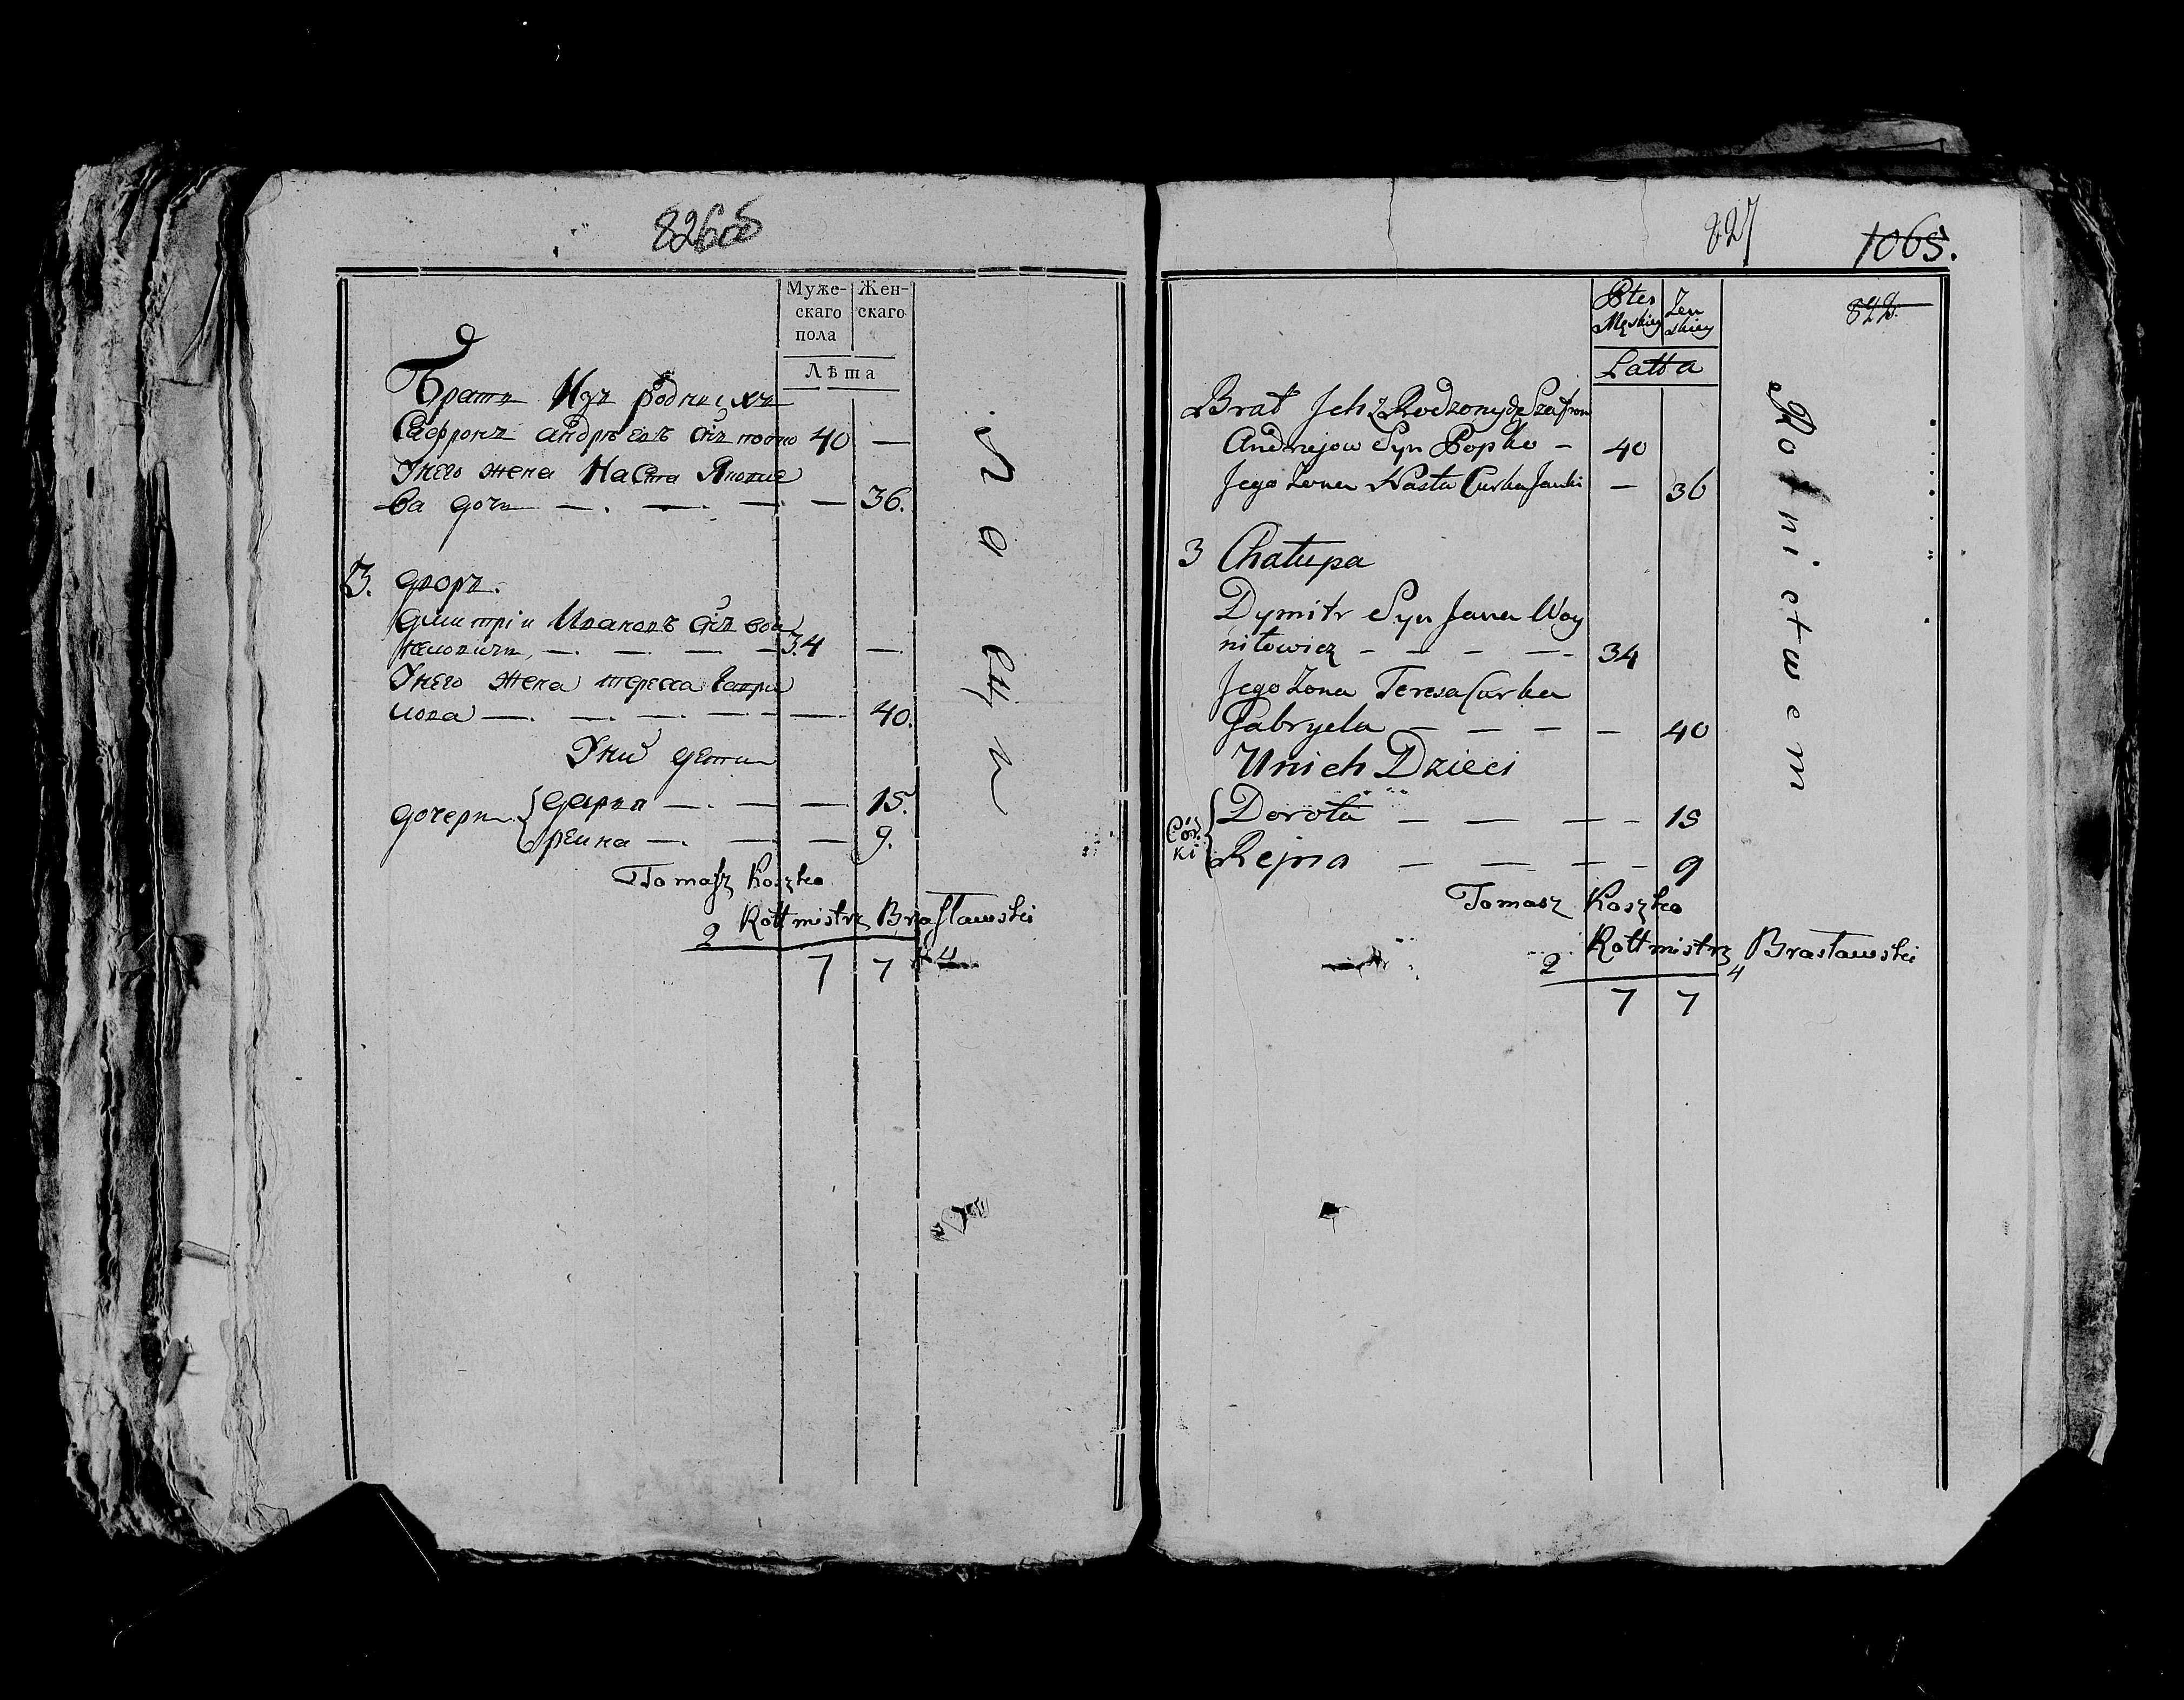 826об
Муже-
скаго
пола
Жен-
скаго
Лѣта
Братъ Ихъ родныхъ
Сафронъ андрѣевъ сынъ попко 40 —
Унего жена Наста Янопие
ва дочь — . — . — — 36.
3. дворъ.
дмитріи Ивановъ сынъ вои
ниловичъ, — . — . — . — 34 —
Унего жена тереса Гаври
лова — . — . — . — — 40.
Уних дети
дочери { дарья — . — — 15.
реина — . — — 9.
Tomasz Koszko
2 Rottmistrz Brasławski
7 7 4
827
1065.
822.
Płci
Męskiey
Żeń
skiey
Latta
Brat Jch z Rodzonych Szafron
Andrzejow Syn Popko - 40
Jego Żona Nasta Curka Janki — 36
3 Chałupa
Dymitr Syn Jana Woy
niłowicz - - - - 34
Jego Żona Teresa Curka
Gabryela — — — — 40
Unich Dzieci
Cór
ki { Dorota — — — - 15
Rejna — — — - 9
Tomasz Koszko
2 Rottmistrz Brasławski
7 7 4
Rolnictwem